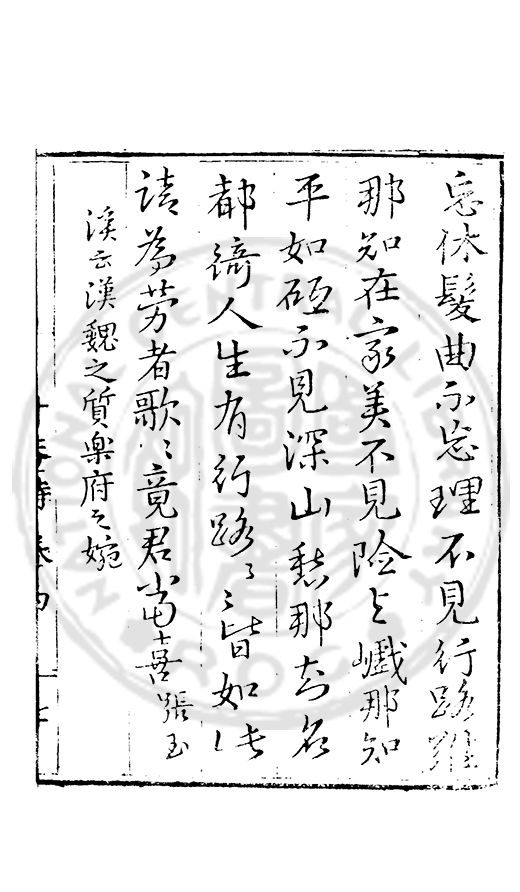 忘休髮曲不忘理不見行路難
那知在家美不見險与巇那知
平如砥不見深山愁那知名
都綺人生有行路々々皆如此
請為勞者歌々竟君當喜張玉
溪云漢魏之質楽府之婉